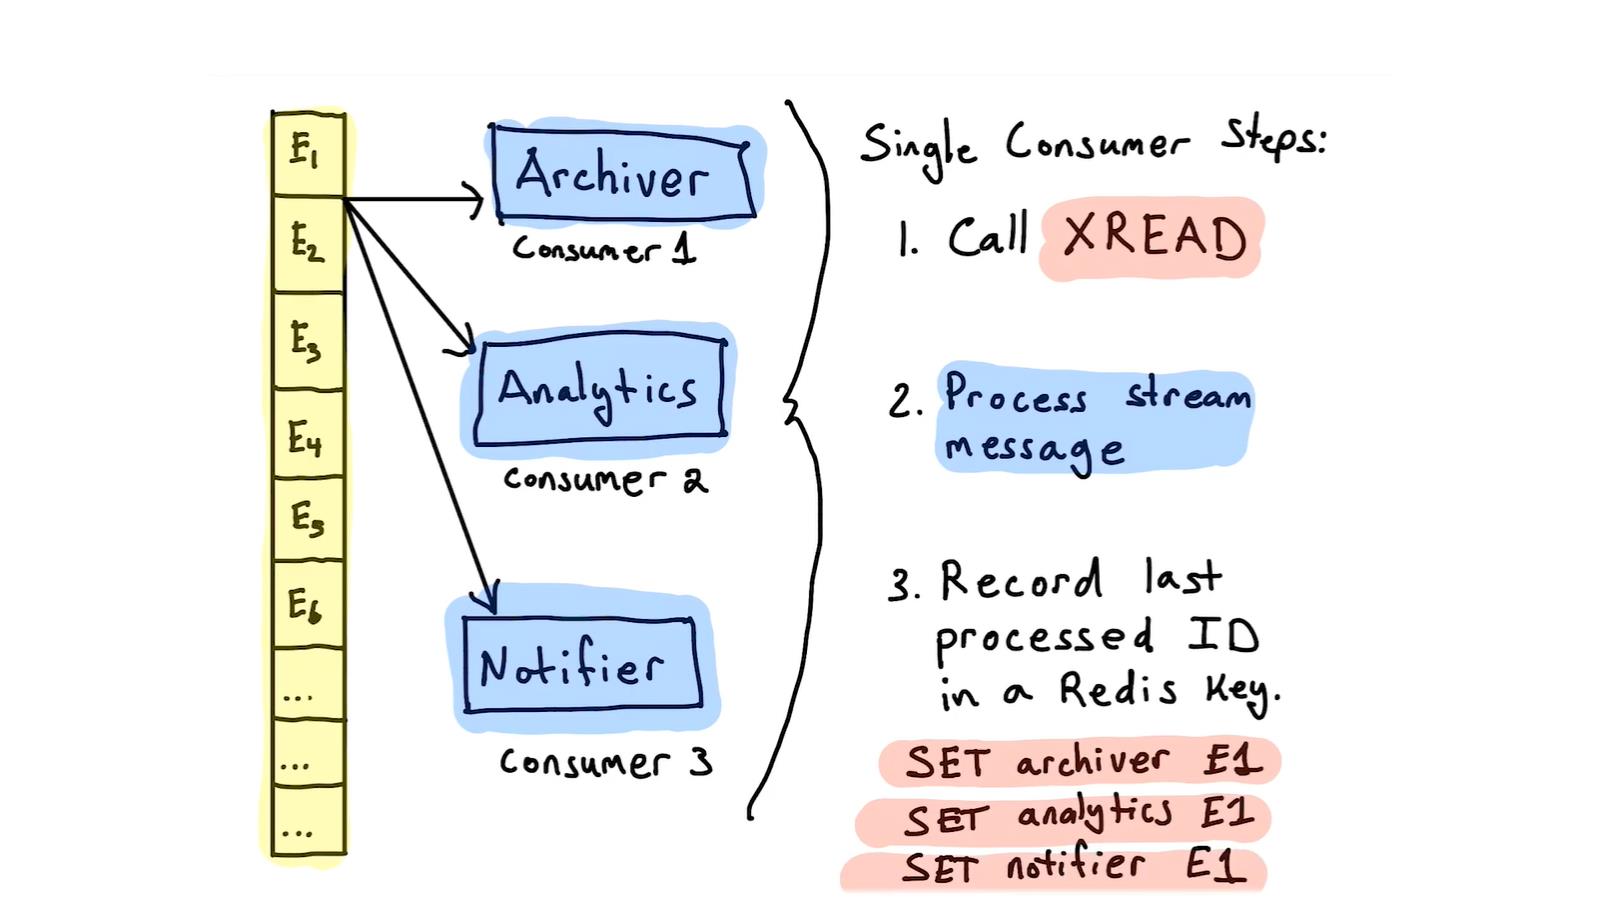 E1
E2
E3
E4
E5
E6
...
...
...
Archiver
Consumer 1
Analytics
Consumer 2
Notifier
Consumer 3
Single Consumer Steps:
1. Call XREAD
2. Process stream
message
3. Record last
processed ID
in a Redis Key.
SET archiver E1
SET analytics E1
SET notifier E1